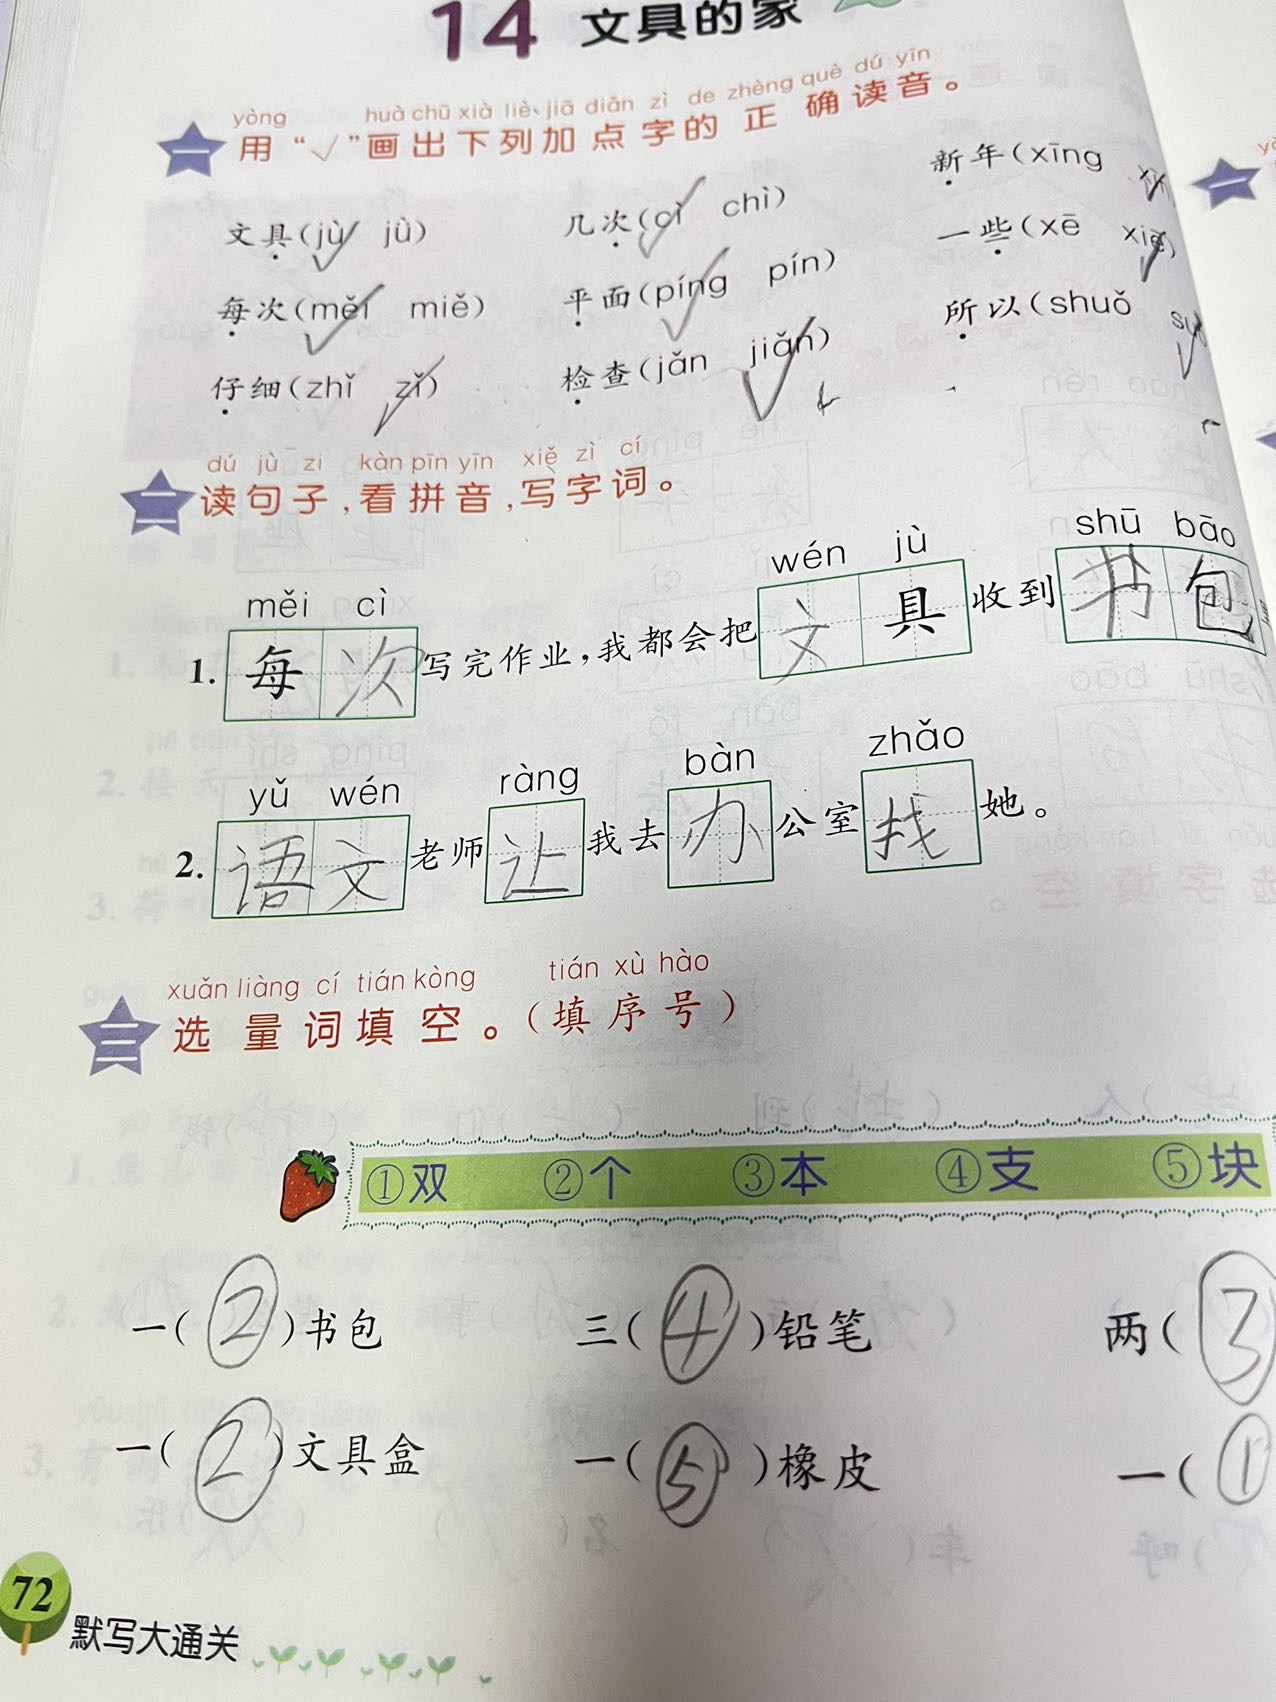 14 文具的家
yòng huà chū xià liè jiā diǎn zì de zhèng què dú yīn
用“√”画出下列加点字的正确读音。
文具(jù jù) 几次(cì chì) 新年(xīng
每次(měi miě) 平面(píng pín) 一些(xē xiē)
仔细(zhǐ zǐ) 检查(jǎn jiǎn) 所以(shuǒ
dú jù zi kàn pīn yīn xiě zì cí
二 读句子,看拼音,写字词。
měi cì wén jù shū bāo
1. 每次写完作业,我都会把文具收到书包
yǔ wén ràng bàn zhǎo
2. 语文老师让我去办公室找她。
xuǎn liàng cí tián kòng tián xù hào
三 选量词填空。(填序号)
①双 ②个 ③本 ④支 ⑤块
一(②)书包 三(④)铅笔 两(③
一(②)文具盒 一(⑤)橡皮 一(①
72
默写大通关